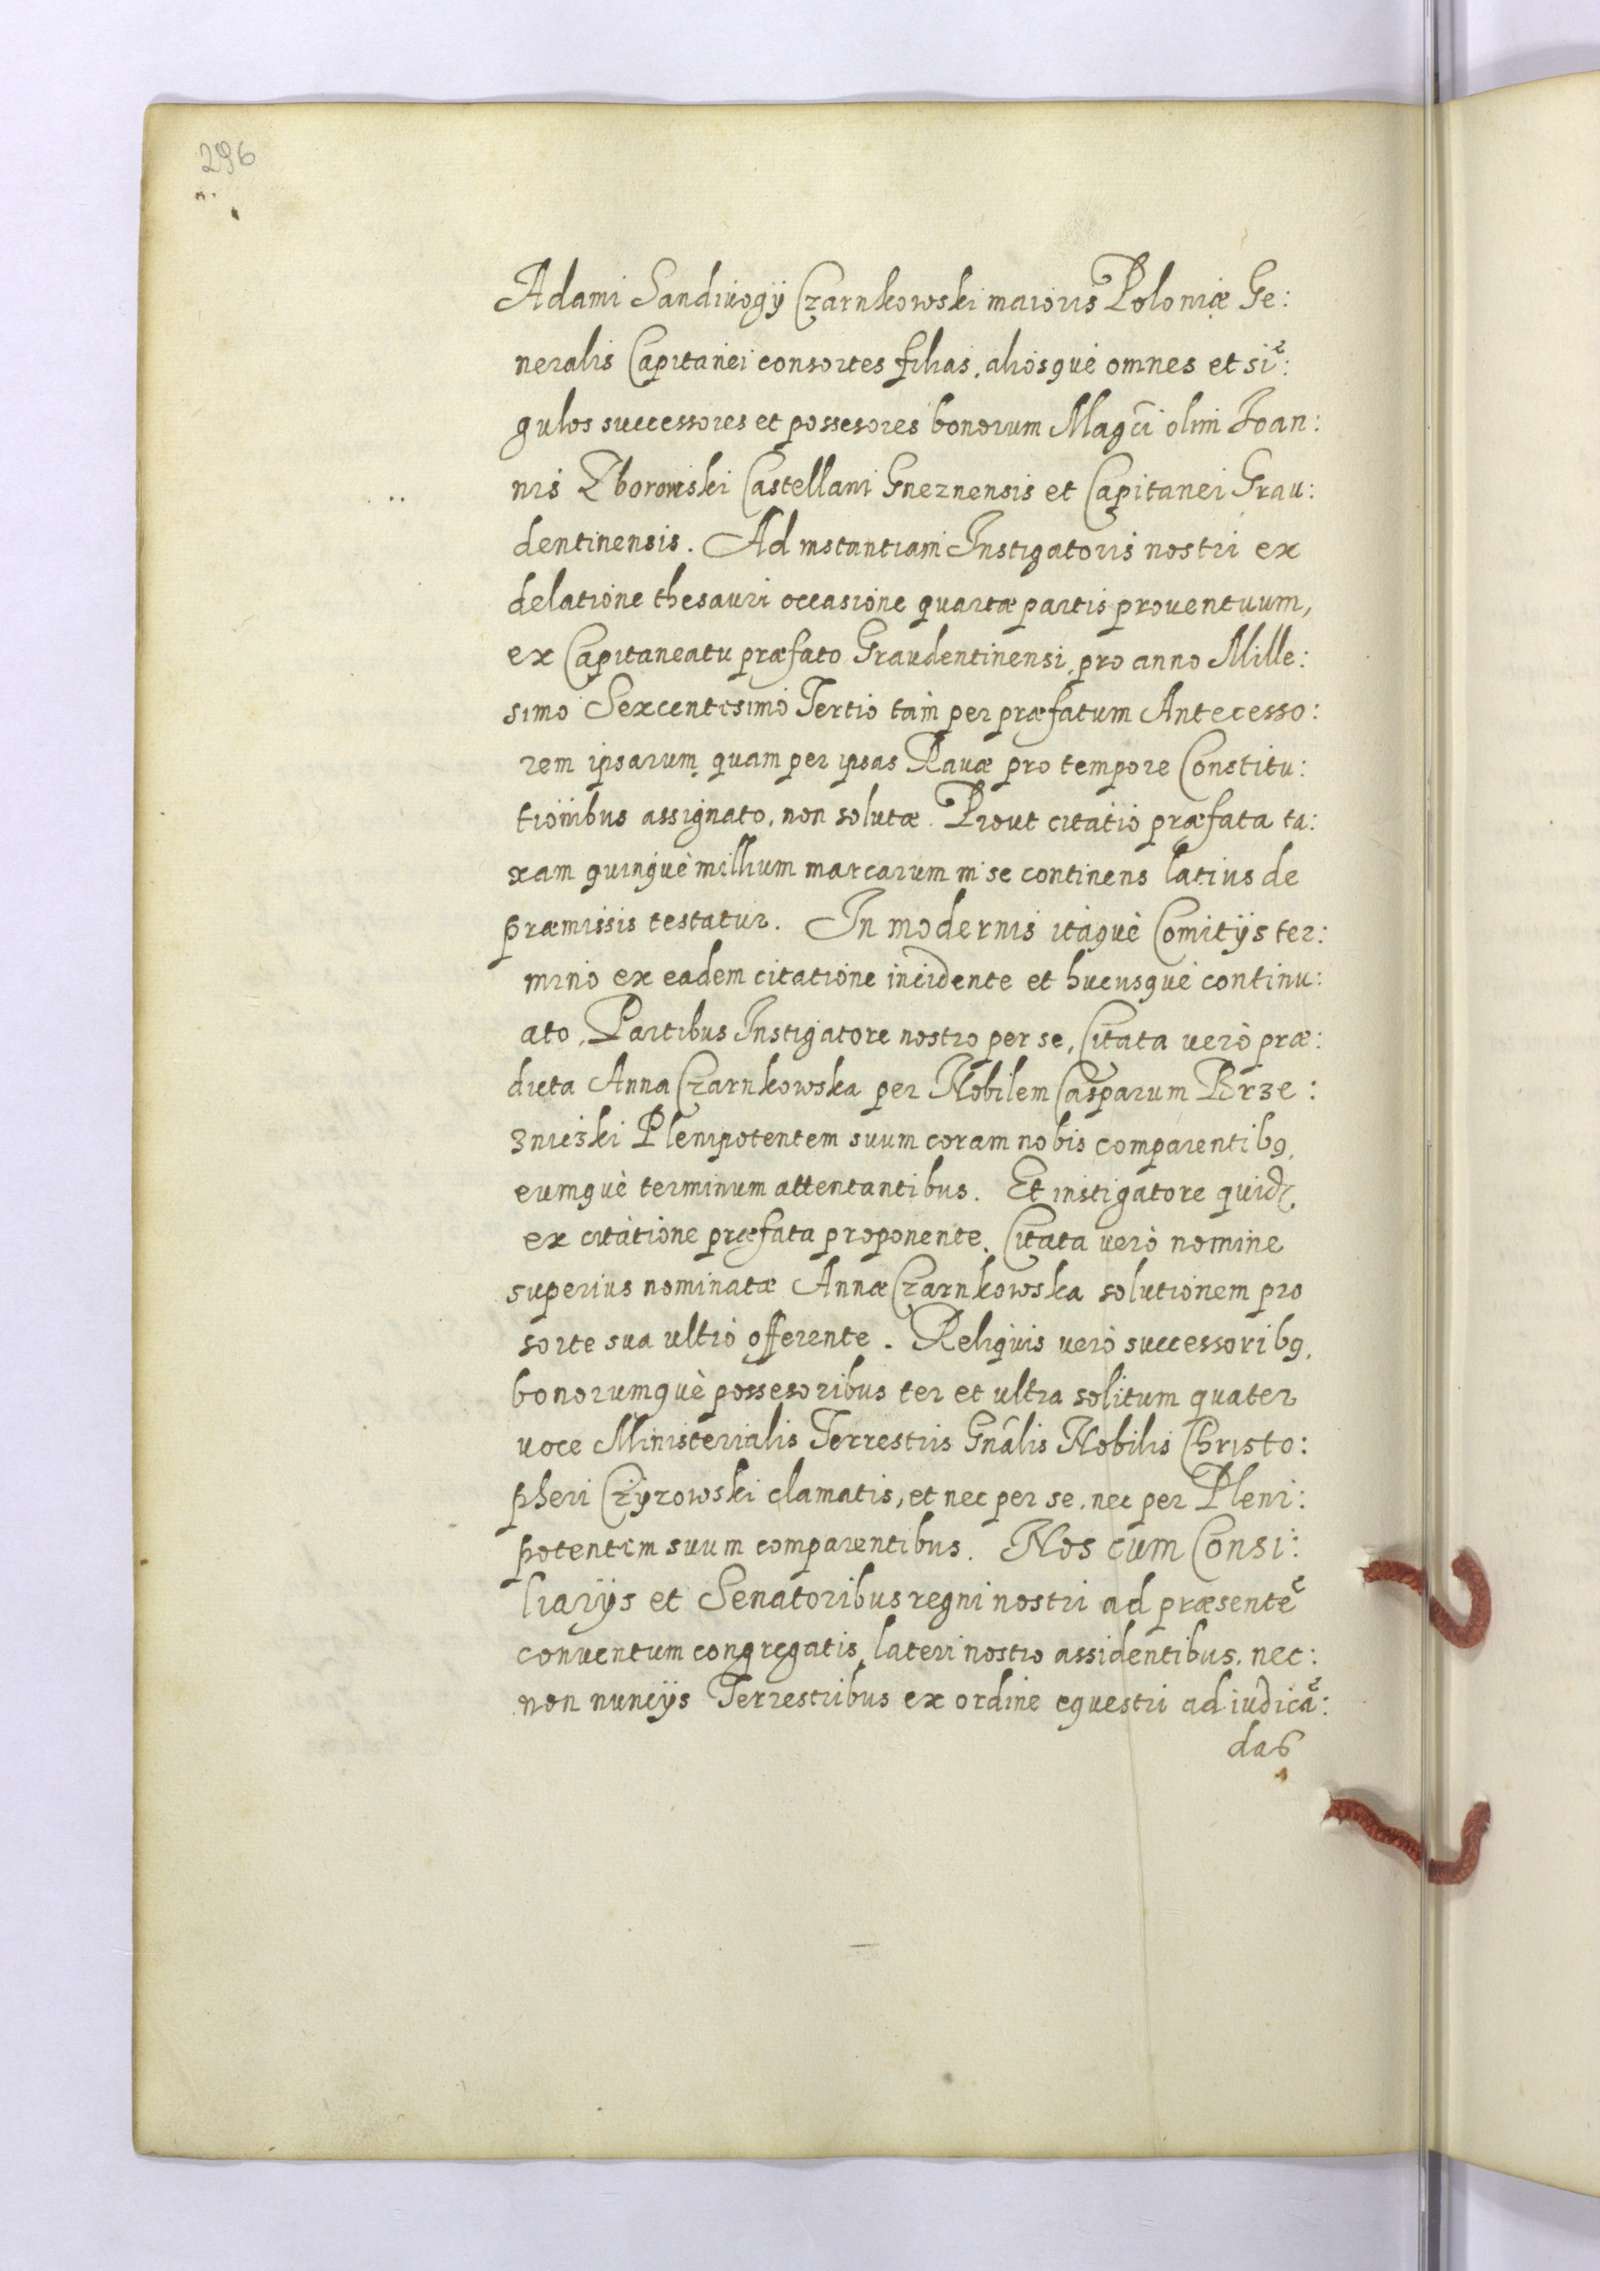 296
Adami Sandiuogÿ Czarnkowski maioris Poloniæ Ge:
neralis Capitanei consortes filias, aliosquè omnes et sĩ:
gulos successores et possesores bonorum Magci olim Joan:
nis Zborowski Castellani Gneznensis et Capitanei Grau:
dentinensis. Ad instantiam Instigatoris nostri ex
delatione thesauri occasione quartæ partis prouentuum,
ex Capitaneatu præfato Graudentinensi, pro anno Mille:
simo Sexcentesimo Tertio tàm per præfatum Antecesso:
rem ipsarum, quam per ipsas Rauæ pro tempore Constitu:
tionibus assignato, non solutæ. Prout citatio præfata ta:
xam quinquè millium marcarum in se continens latius de
præmissis testatur. In modernis itaquè Comitÿs ter:
mino ex eadem citatione incidente et hucusquè continu:
ato, Partibus Instigatore nostro per se, Citata verò præ:
dicta Anna Czarnkowska per Nobilem Casparum Brze:
znieski Plenipotentem suum coram nobis comparentib9,
eumquè terminum attentantibus. Et instigatore quid
ex citatione præfata proponente. Citata verò nomine
superius nominatæ Annæ Czarnkowska solutionem pro
sorte sua ultrò offerente. Reliquis verò successorib9,
bonorumquè possesoribus ter et ultra solitum quater
voce Ministerialis Terrestris Gnãlis Nobilis Christo:
pheri Czyzowski clamatis, et nec per se, nec per Pleni:
potentem suum comparentibus. Nos cum Consi:
liarÿs et Senatoribus regni nostri ad præsentẽ
conuentum congregatis, lateri nostro assidentibus, nec:
non nuncÿs Terrestribus ex ordine equestri ad iudicã:
das